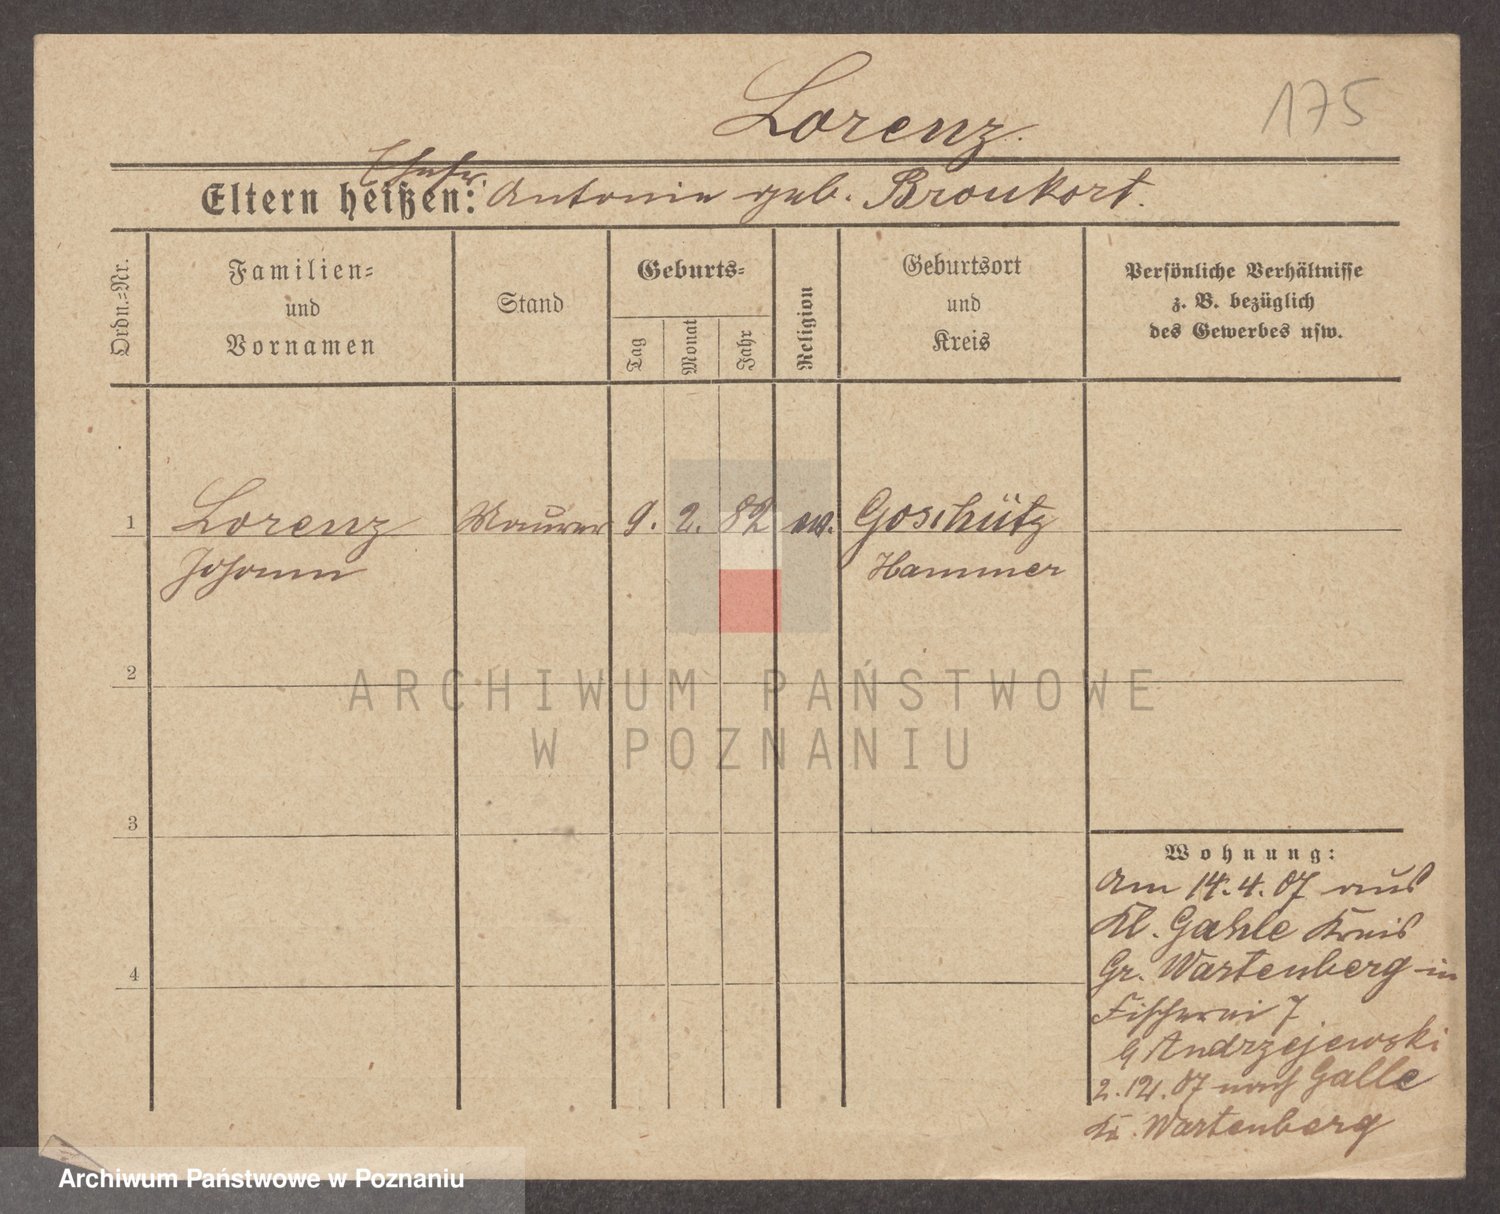 Lorenz.
175
Ehefr.
Eltern heißen: Antonie geb. Broukort.
Ordn.-Nr.
Familien-
und
Vornamen
Stand
Geburts-
Tag
Monat
Jahr
Religion
Geburtsort
und
Kreis
Persönliche Verhältnisse
z. B. bezüglich
des Gewerbes usw.
1 Lorenz Maurer 9. 2. 82 ev. Goschütz
Johann Hammer
2
ARCHIWUM PAŃSTWOWE
W POZNANIU
3
Wohnung:
Am 14.4.07 aus
Kl. Gahle Kreis
Gr. Wartenberg in
Fischerei 7
Andrzejewski
4
2.12.07 nach Galle
Kr. Wartenberg
Archiwum Państwowe w Poznaniu